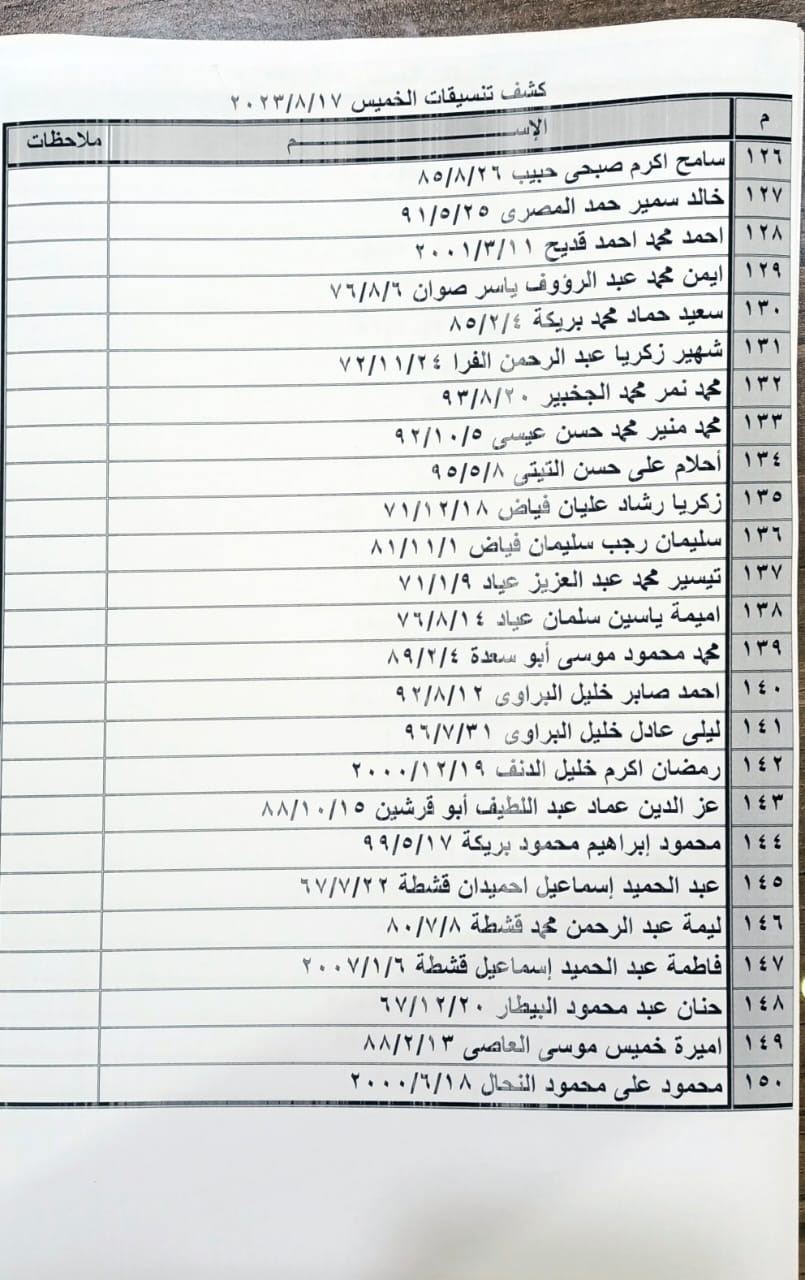 كشف تنسيقات الخميس ٢٠٢٣/٨/١٧
م الإســـــــم ملاحظات
١٢٦ سامح اكرم صبحى حبيب ٨٥/٨/٢٦
١٢٧ خالد سمير حمد المصرى ٩١/٥/٢٥
١٢٨ احمد محمد احمد قديح ٢٠٠١/٣/١١
١٢٩ ايمن محمد عبد الرؤوف ياسر صوان ٧٦/٨/٦
١٣٠ سعيد حماد محمد بريكة ٨٥/٢/٤
١٣١ شهير زكريا عبد الرحمن الفرا ٧٢/١١/٢٤
١٣٢ محمد نمر محمد الجخبير ٩٣/٨/٢٠
١٣٣ محمد منير محمد حسن عيسى ٩٢/١٠/٥
١٣٤ أحلام على حسن التيتى ٩٥/٥/٨
١٣٥ زكريا رشاد عليان فياض ٧١/١٢/١٨
١٣٦ سليمان رجب سليمان فياض ٨١/١١/١
١٣٧ تيسير محمد عبد العزيز عياد ٧١/١/٩
١٣٨ اميمة ياسين سلمان عياد ٧٦/٨/١٤
١٣٩ محمد محمود موسى أبو سعدة ٨٩/٢/٤
١٤٠ احمد صابر خليل البراوى ٩٢/٨/١٢
١٤١ ليلى عادل خليل البراوى ٩٦/٧/٣١
١٤٢ رمضان اكرم خليل الدنف ٢٠٠٠/١٢/١٩
١٤٣ عز الدين عماد عبد اللطيف أبو قرشين ٨٨/١٠/١٥
١٤٤ محمود إبراهيم محمود بريكة ٩٩/٥/١٧
١٤٥ عبد الحميد إسماعيل احميدان قشطة ٦٧/٧/٢٢
١٤٦ ليمة عبد الرحمن محمد قشطة ٨٠/٧/٨
١٤٧ فاطمة عبد الحميد إسماعيل قشطة ٢٠٠٧/١/٦
١٤٨ حنان عبد محمود البيطار ٦٧/١٢/٢٠
١٤٩ اميرة خميس موسى العاصى ٨٨/٢/١٣
١٥٠ محمود على محمود النحال ٢٠٠٠/٦/١٨